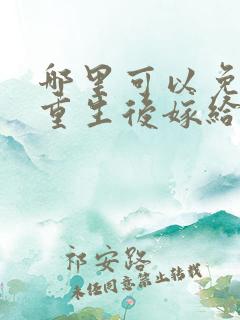 哪里可以免
重生後嫁給
祁安路
未经同意禁止转载